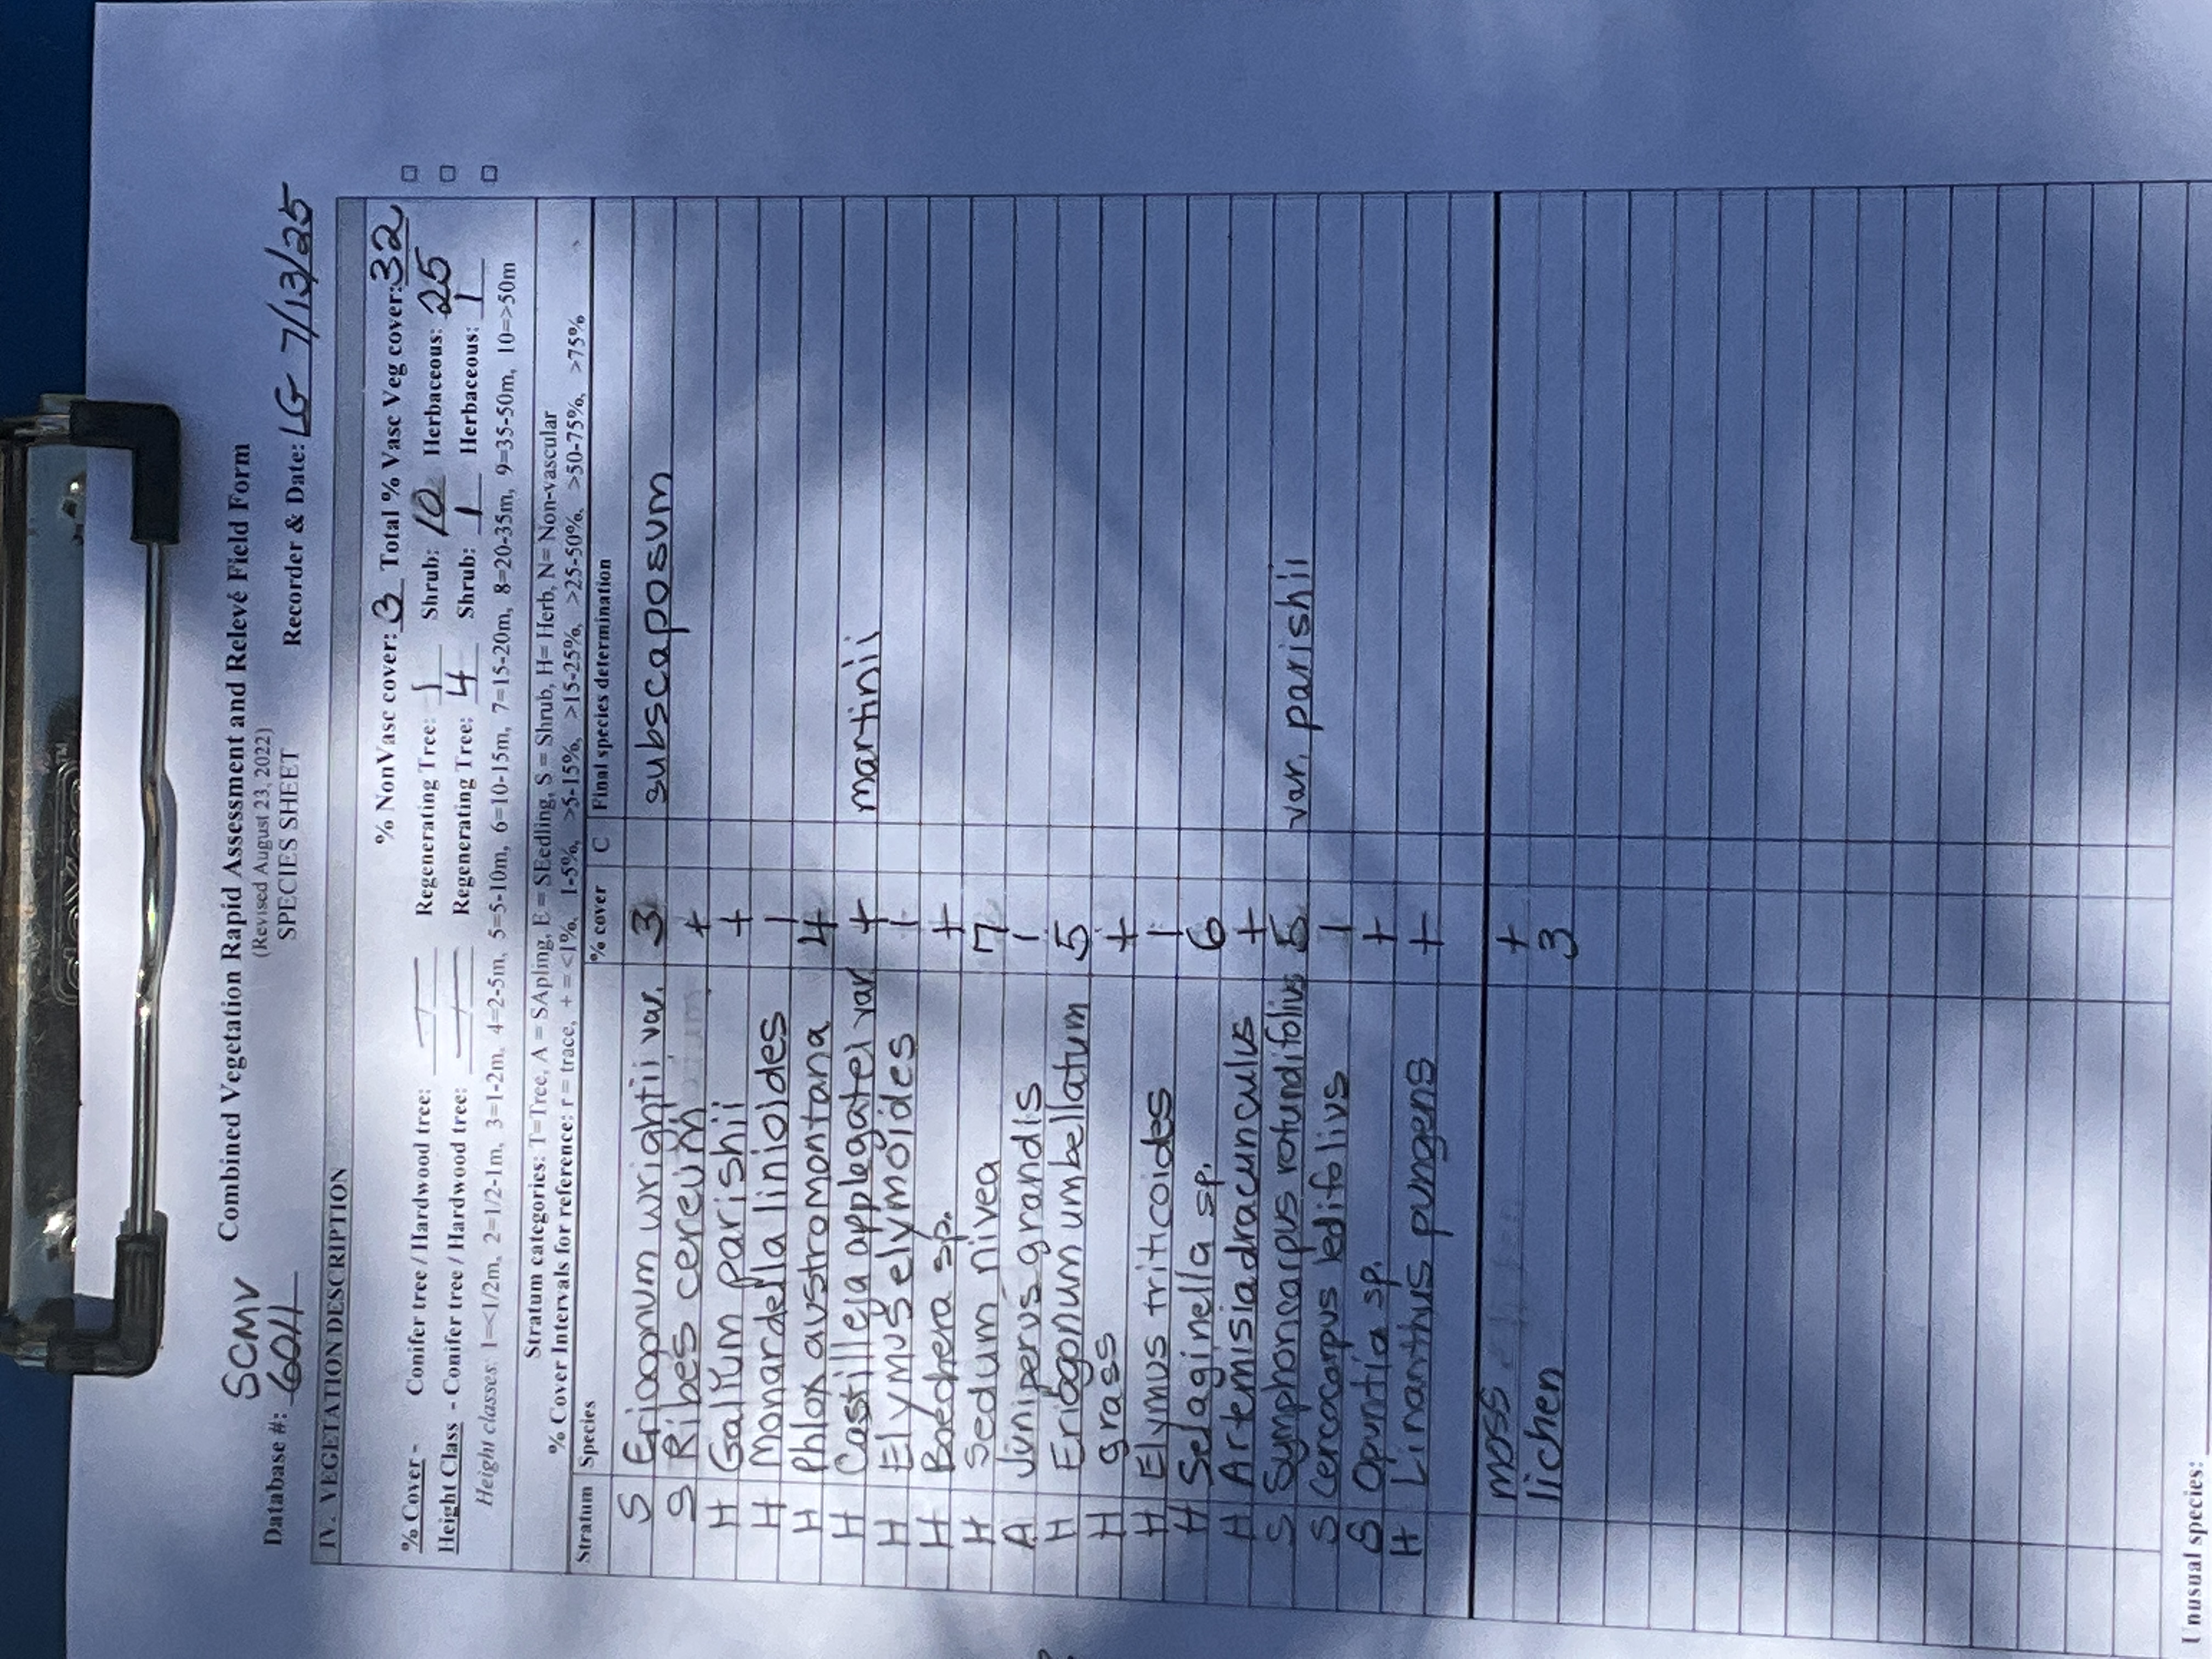 SCMV
Combined Vegetation Rapid Assessment and Relevé Field Form
(Revised August 23, 2022)
Database #: 6011 SPECIES SHEET Recorder & Date: LG 7/13/25
IV. VEGETATION DESCRIPTION
% NonVasc cover: 3 Total % Vasc Veg cover: 32
% Cover - Conifer tree / Hardwood tree: / Regenerating Tree: 1 Shrub: 10 Herbaceous: 25
Height Class - Conifer tree / Hardwood tree: / Regenerating Tree: 4 Shrub: 1 Herbaceous: 1
Height classes: 1=<1/2m, 2=1/2-1m, 3=1-2m, 4=2-5m, 5=5-10m, 6=10-15m, 7=15-20m, 8=20-35m, 9=35-50m, 10=>50m
Stratum categories: T=Tree, A = SApling, E = SEedling, S = Shrub, H= Herb, N= Non-vascular
% Cover Intervals for reference: r = trace, + = <1%, 1-5%, >5-15%, >15-25%, >25-50%, >50-75%, >75%
Stratum Species % cover C Final species determination
S Eriogonum wrightii var. 3 subscaposum
S Ribes cereum +
H Galium parishii +
H Monardella linioides 1
H Phlox austromontana 4
H Castilleja applegatei var + martinii
H Elymus elymoides 1
H Boechera sp. +
H Sedum nivea 7
A Juniperus grandis 1
H Eriogonum umbellatum 5
H grass +
H Elymus triticoides 1
H Selaginella sp. 6
H Artemisia dracunculus +
S Symphoricarpus rotundifolius 5 var. parishii
S Cercocarpus ledifolius 1
S Opuntia sp. +
H Linanthus pungens +
moss +
lichen 3
Unusual species: